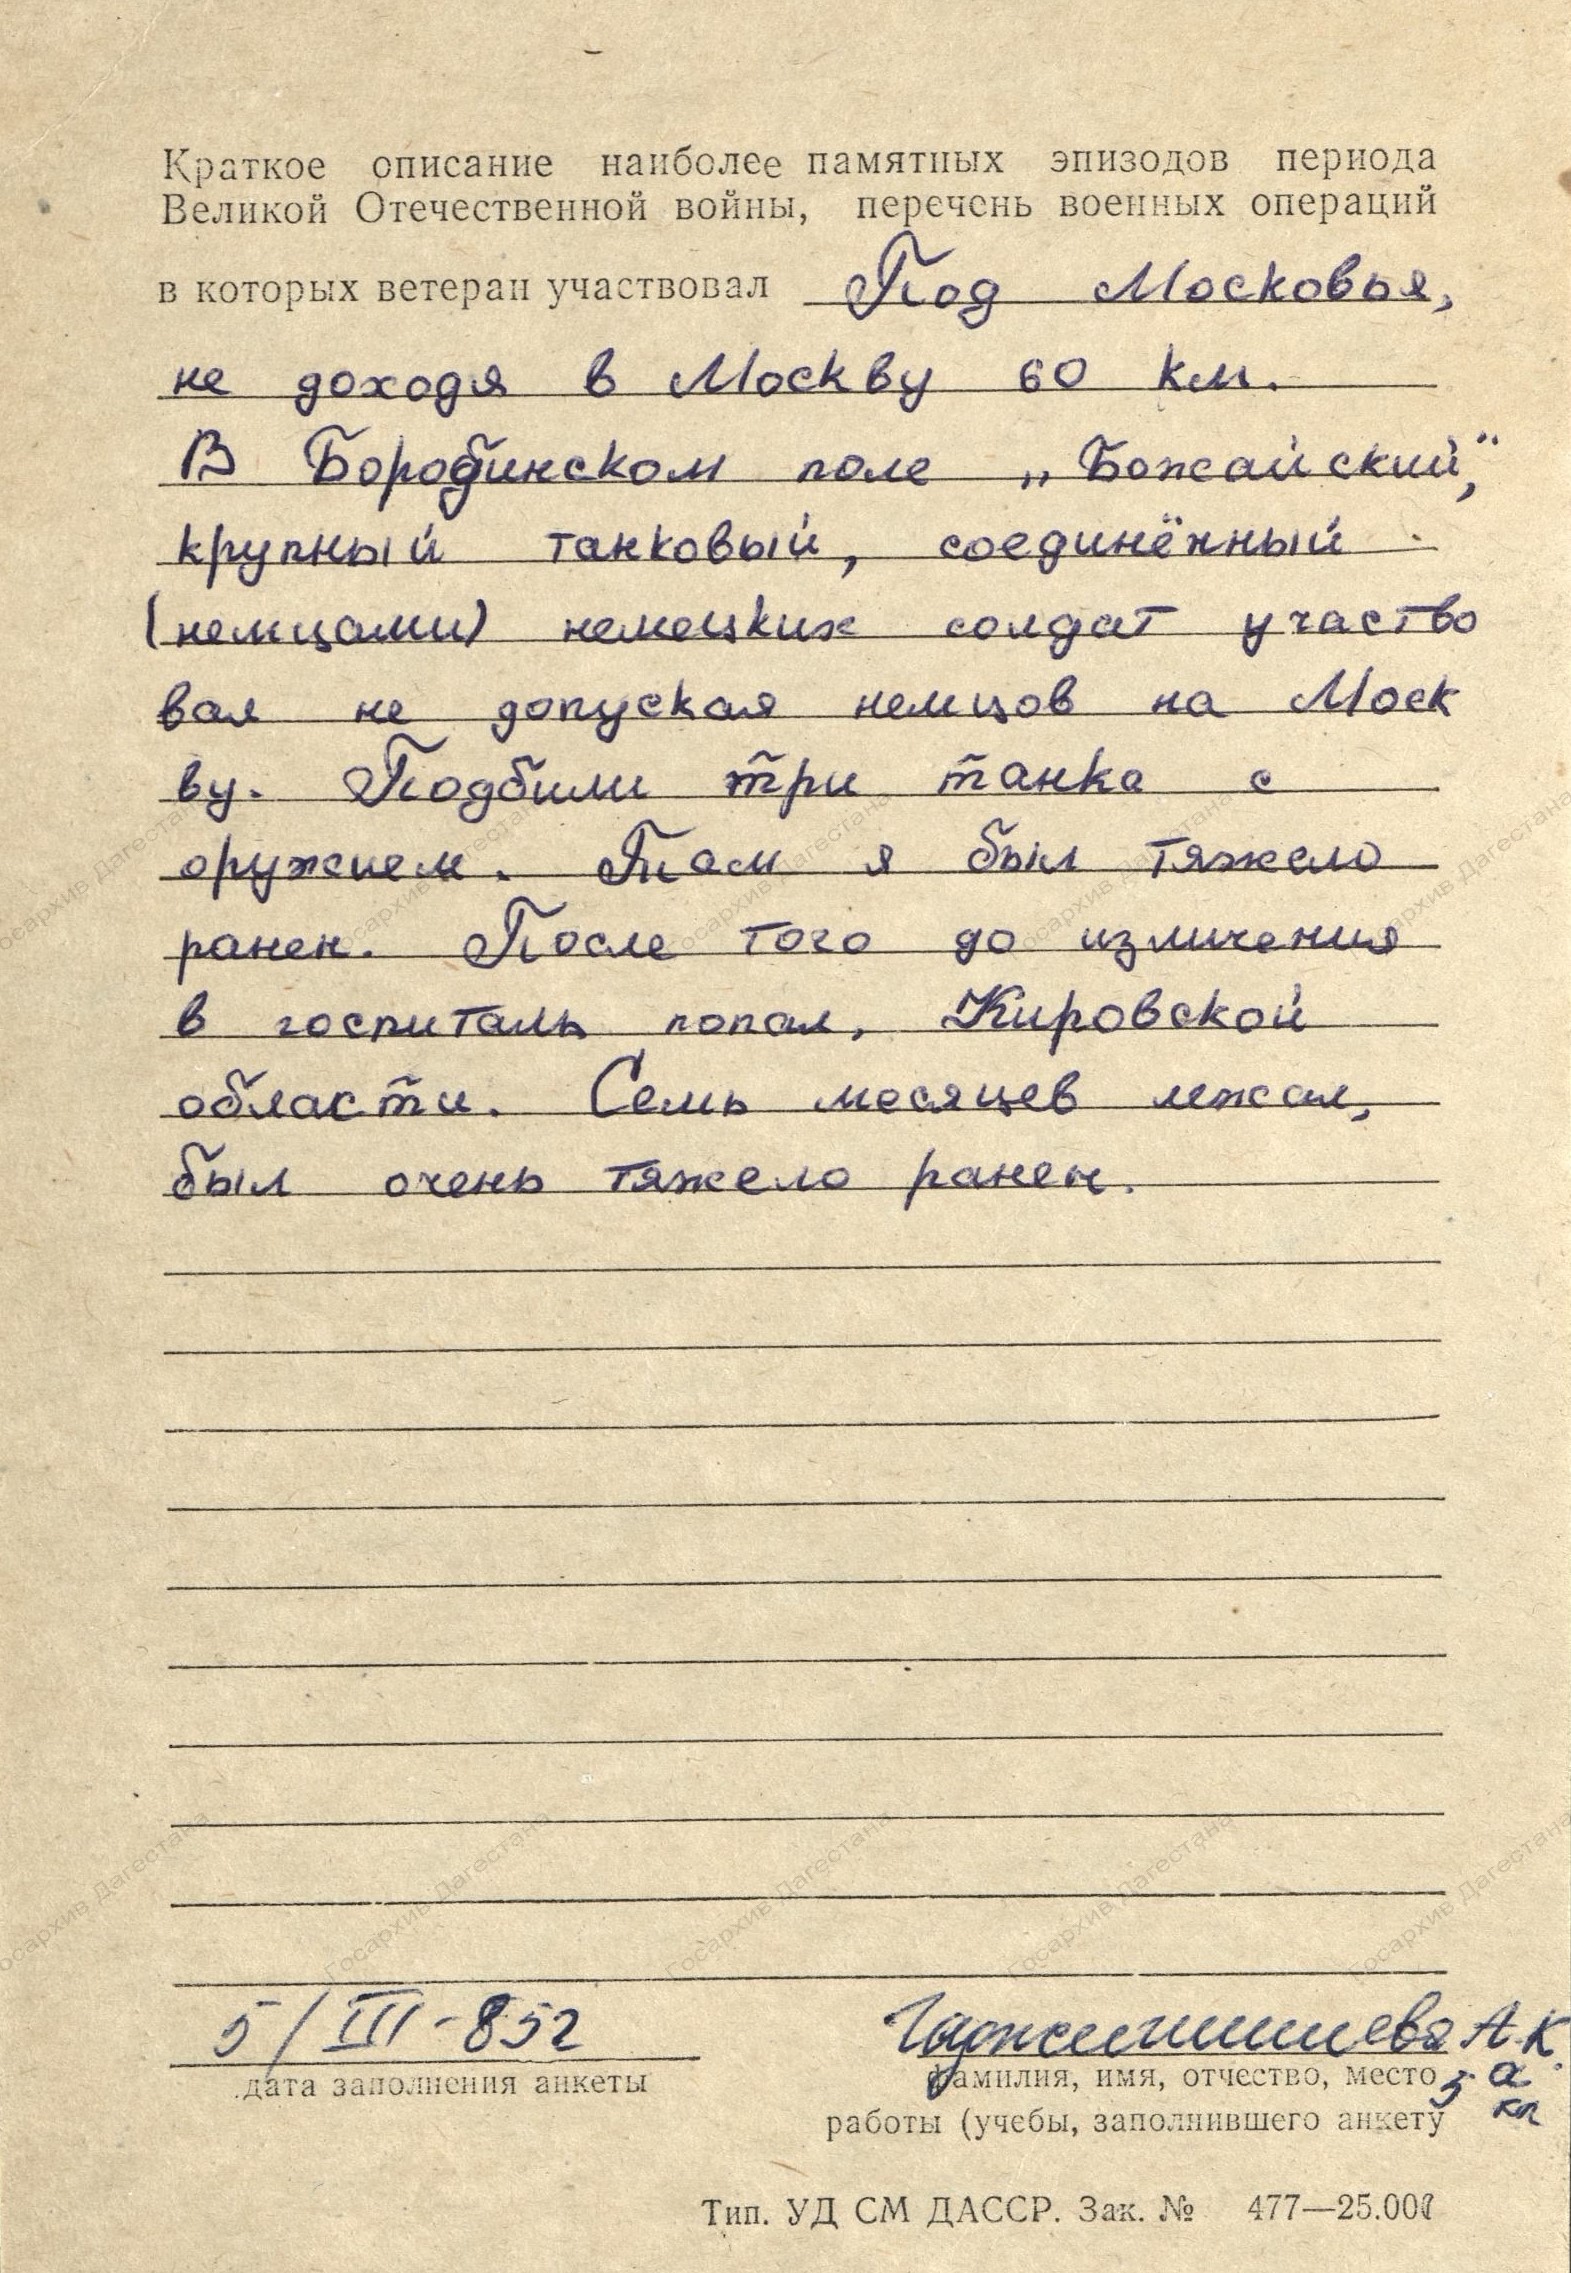 Краткое описание наиболее памятных эпизодов периода
Великой Отечественной войны, перечень военных операций
в которых ветеран участвовал Под Московья,
не доходя в Москву 60 км.
В Бородинском поле „Божайский",
крупный танковый, соединённый
(немцами) немецких солдат участво
вал не допуская немцов на Моск
ву. Подбили три танка с
оружием. Там я был тяжело
ранен. После того до изличения
в госпиталь попал, Кировской
области. Семь месяцев лежал,
был очень тяжело ранен.
5/III-852
дата заполнения анкеты
А.К.
фамилия, имя, отчество, место
5 а кл
работы (учебы, заполнившего анкету
Тип. УД СМ ДАССР. Зак. № 477—25.000
Госархив Дагестана